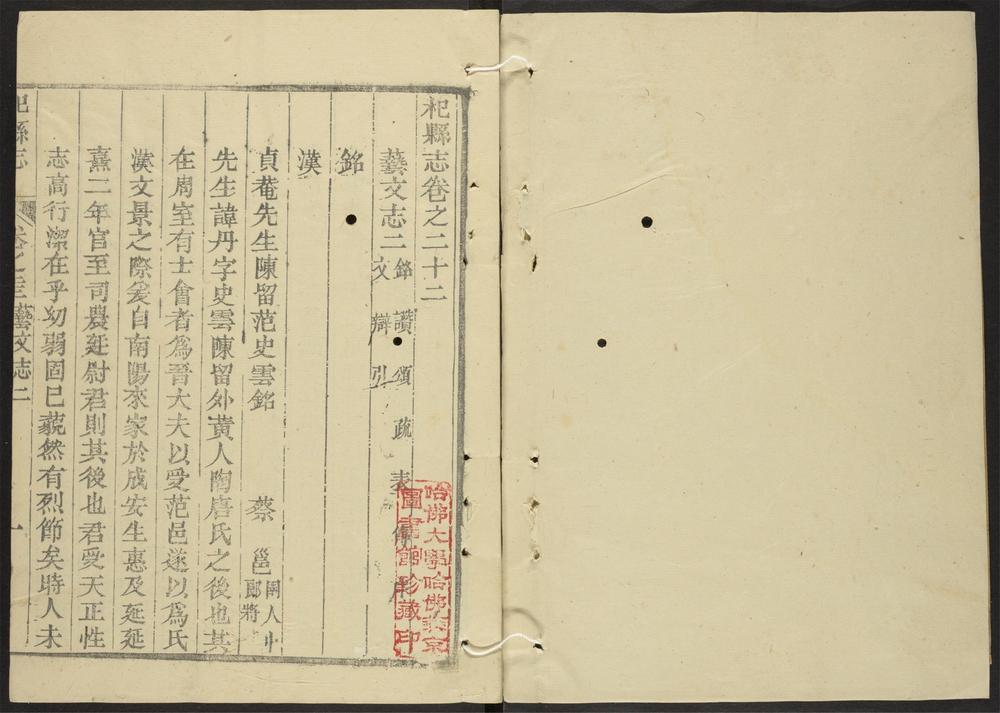 杞縣志卷之二十二
藝文志二 銘 讚 頌 疏 表 傳
文 辯 引
銘
漢
貞菴先生陳留范史雲銘 蔡邕 圉人中郎將
先生諱丹字史雲陳留外黄人陶唐氏之後也其
在周室有士會者爲晉大夫以受范邑遂以爲氏
漢文景之際爰自南陽來家於成安生惠及延延
熹二年官至司農廷尉君則其後也君受天正性
志高行潔在乎幼弱固已藐然有烈節矣時人未
杞縣志 卷之二十二藝文志二 一
哈佛大學哈佛燕京
圖書館珍藏印